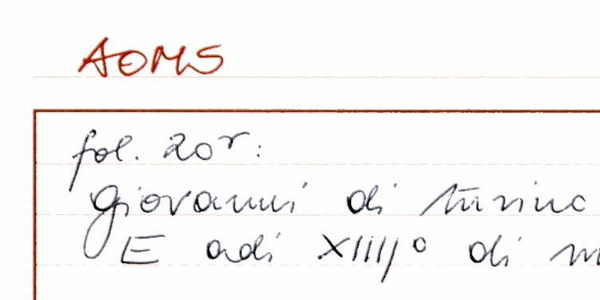 AOMS
fol. 20r:
Giovanni di turino
E adi XIIIJ° di